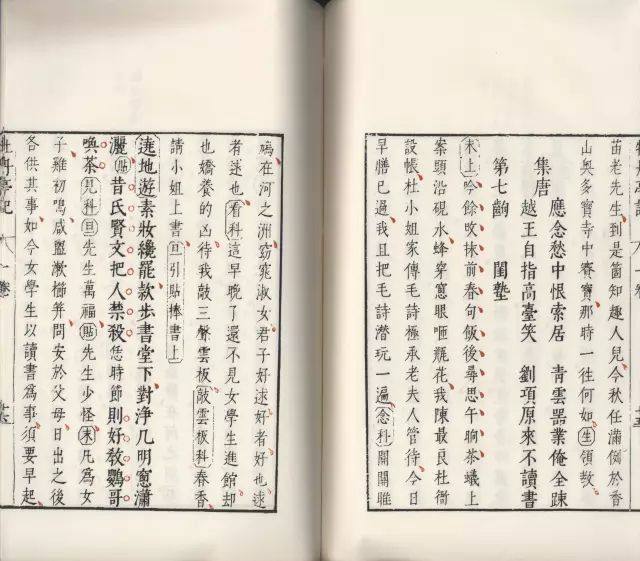 苗老先生到是箇知趣人兒今秋任滿例於香
山嶴多寶寺中賽寶那時一往何如生領教
集唐
應念愁中恨索居　青雲器業俺全踈
越王自指高臺笑　劉項原來不讀書
第七齣　閨塾
末上吟餘改抹前春句飯後尋思午晌茶蟻上
案頭沿硯水蜂穿窻眼咂甁花我陳最良杜衙
設帳杜小姐家傳毛詩極承老夫人管待今日
早膳已過我且把毛詩潛玩一遍念科關關雎
鳩在河之洲窈窕淑女君子好逑好者好也逑
者逑也看科這早晚了還不見女學生進館却
也嬌養的凶待我敲三聲雲板敲雲板科春香
請小姐上書旦引貼捧書上
遶地遊素妝纔罷款步書堂下對淨几明窻瀟
灑貼昔氏賢文把人禁殺恁時節則好敎鸚哥
喚茶見科旦先生萬福貼先生少怪末凡爲女
子雞初鳴咸盥漱櫛笄問安於父母日出之後
各供其事如今女學生以讀書爲事須要早起
牡丹亭記　卷一